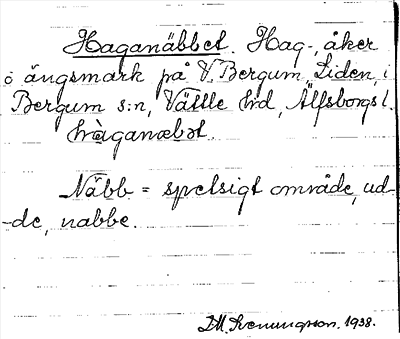 Haganäbbet. Hag-, åker
o ängsmark på V. Bergum, Liden, i
Bergum s:n, Vättle hd, Älfsborgs l.
hàganæbət.
Näbb = spetsigt område, ud-
-de, nabbe.
1938.